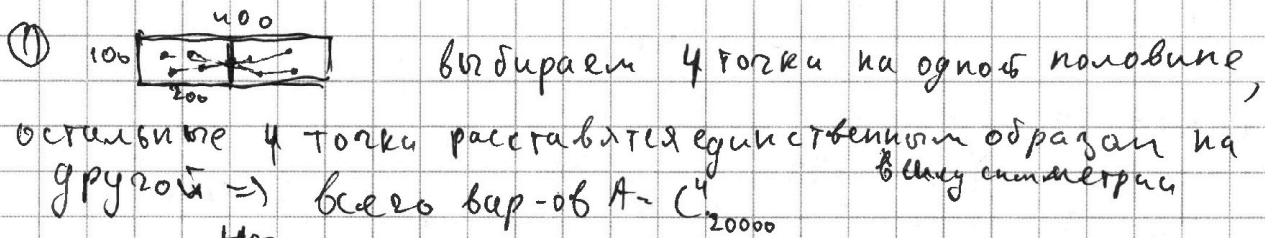 ① 400
100
200
выбираем 4 точки на одной половине,
остальные 4 точки расставятся единственным образом на
в силу симметрии
другой => всего вар-ов A - C⁴₂₀₀₀₀